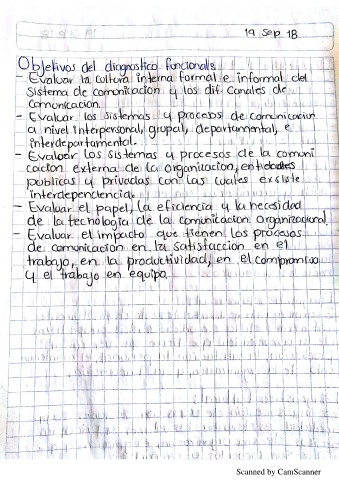 19 Sep 18
Objetivos del diagnostico funcional:
- Evaluar la cultura interna formal e informal del
sistema de comunicacion y los dif. canales de
comunicacion.
- Evaluar los sistemas y procesos de comunicacion
a nivel interpersonal, grupal, departamental, e
interdepartamental.
- Evaluar los sistemas y procesos de la comuni
cacion externa de la organizacion, entidades
publicas y privadas con las cuales existe
interdependencia.
- Evaluar el papel, la eficiencia y la necesidad
de la tecnologia de la comunicacion organizacional.
- Evaluar el impacto que tienen los procesos
de comunicacion en la satisfaccion en el
trabajo, en la productividad, en el compromiso
y el trabajo en equipo.
Scanned by CamScanner